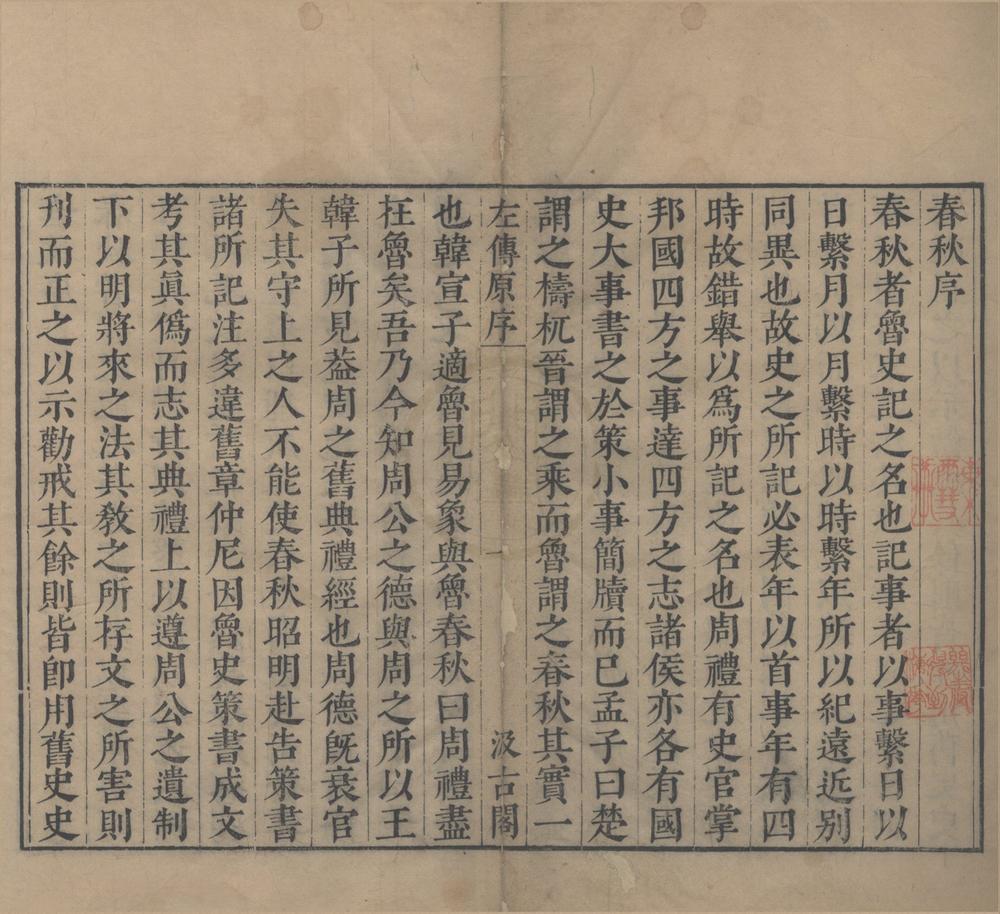 春秋序
春秋者魯史記之名也記事者以事繫日以
日繫月以月繫時以時繫年所以紀遠近別
同異也故史之所記必表年以首事年有四
時故錯舉以爲所記之名也周禮有史官掌
邦國四方之事達四方之志諸侯亦各有國
史大事書之於策小事簡牘而已孟子曰楚
謂之檮杌晉謂之乘而魯謂之春秋其實一
左傳原序 一 汲古閣
也韓宣子適魯見易象與魯春秋曰周禮盡
在魯矣吾乃今知周公之德與周之所以王
韓子所見葢周之舊典禮經也周德旣衰官
失其守上之人不能使春秋昭明赴告策書
諸所記注多違舊章仲尼因魯史策書成文
考其眞僞而志其典禮上以遵周公之遺制
下以明將來之法其敎之所存文之所害則
刋而正之以示勸戒其餘則皆卽用舊史史